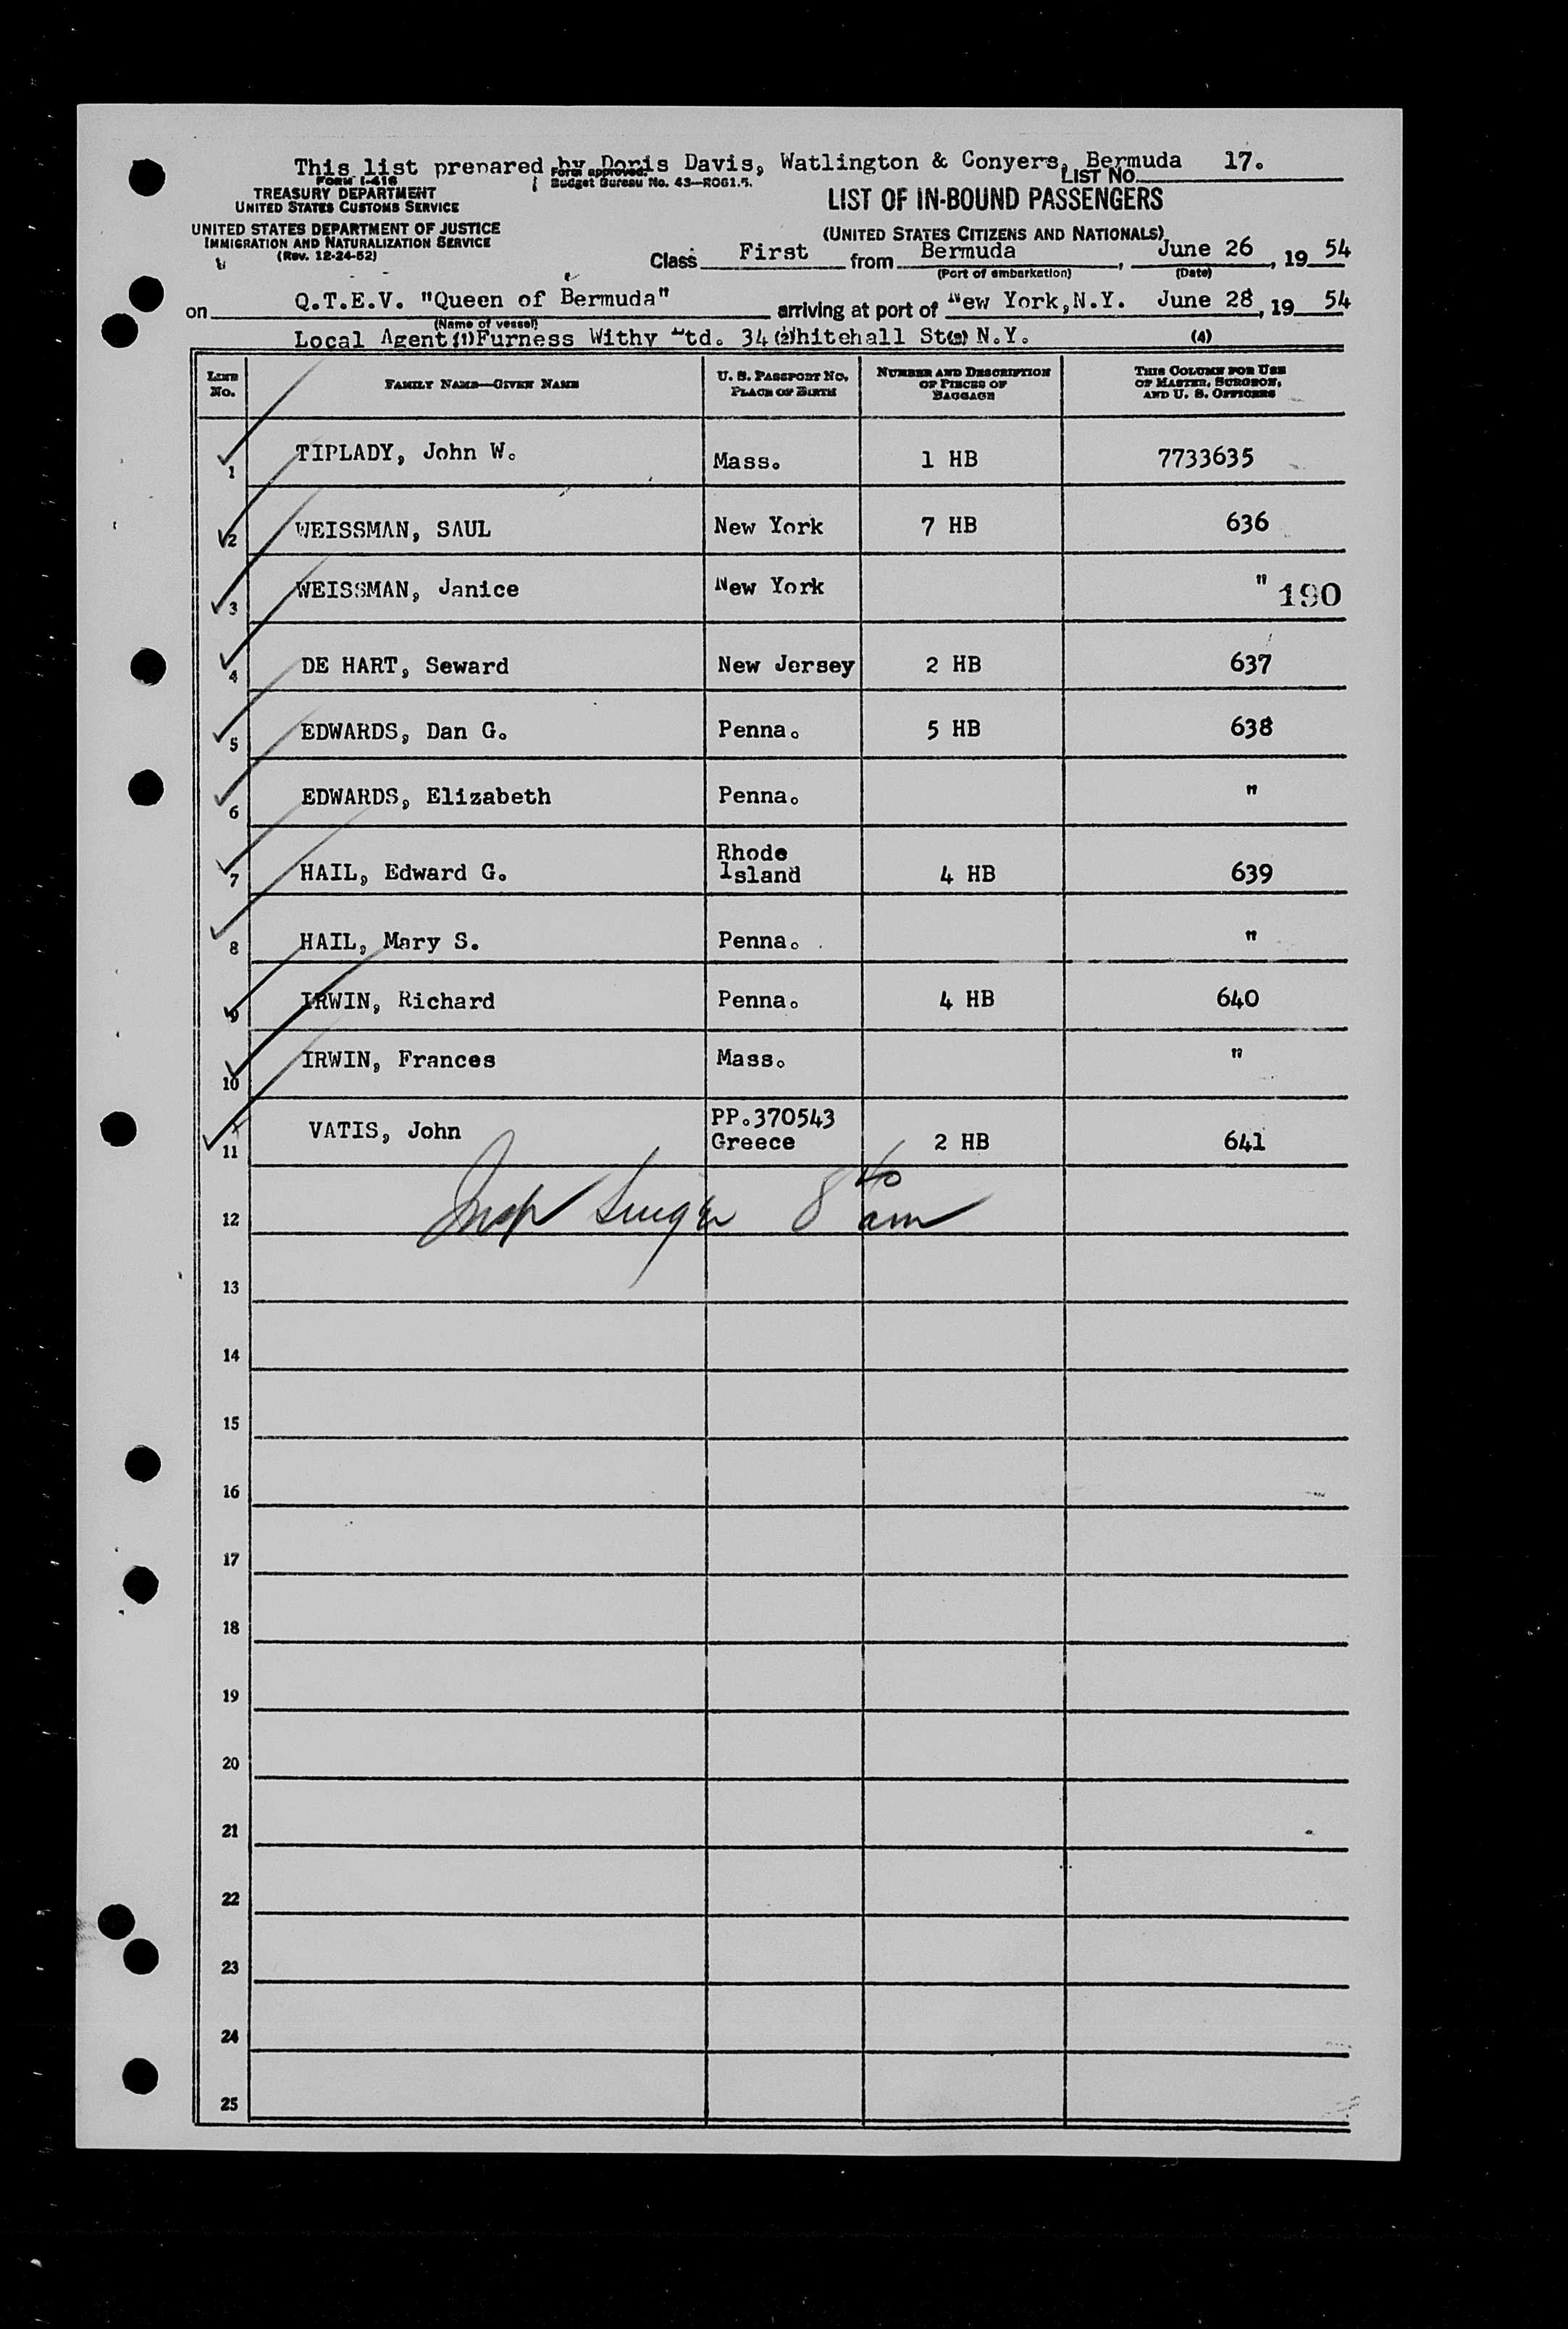 This list prepared by Doris Davis, Watlington & Conyers, Bermuda 17.
Form approved.
LIST NO.
FORM I-416
Budget Bureau No. 43—R061.5.
TREASURY DEPARTMENT
UNITED STATES CUSTOMS SERVICE
LIST OF IN-BOUND PASSENGERS
UNITED STATES DEPARTMENT OF JUSTICE
IMMIGRATION AND NATURALIZATION SERVICE
(Rev. 12-24-52)
(UNITED STATES CITIZENS AND NATIONALS)
Class First from Bermuda, June 26, 19 54
(Port of embarkation) (Date)
on Q.T.E.V. "Queen of Bermuda" arriving at port of New York, N.Y. June 28, 19 54
(Name of vessel)
Local Agent (1) Furness Withy Ltd. 34 (2) Whitehall St (3) N.Y. (4)
LINE NO. FAMILY NAME—GIVEN NAME U. S. PASSPORT NO. PLACE OF BIRTH NUMBER AND DESCRIPTION OF PIECES OF BAGGAGE THIS COLUMN FOR USE OF MASTER, SURGEON, AND U. S. OFFICERS
1 TIPLADY, John W. Mass. 1 HB 7733635
2 WEISSMAN, SAUL New York 7 HB 636
3 WEISSMAN, Janice New York " 190
4 DE HART, Seward New Jersey 2 HB 637
5 EDWARDS, Dan G. Penna. 5 HB 638
6 EDWARDS, Elizabeth Penna. "
7 HAIL, Edward G. Rhode Island 4 HB 639
8 HAIL, Mary S. Penna. "
9 IRWIN, Richard Penna. 4 HB 640
10 IRWIN, Frances Mass. "
11 VATIS, John PP.370543 Greece 2 HB 641
12 Insp 8 40 am
13
14
15
16
17
18
19
20
21
22
23
24
25